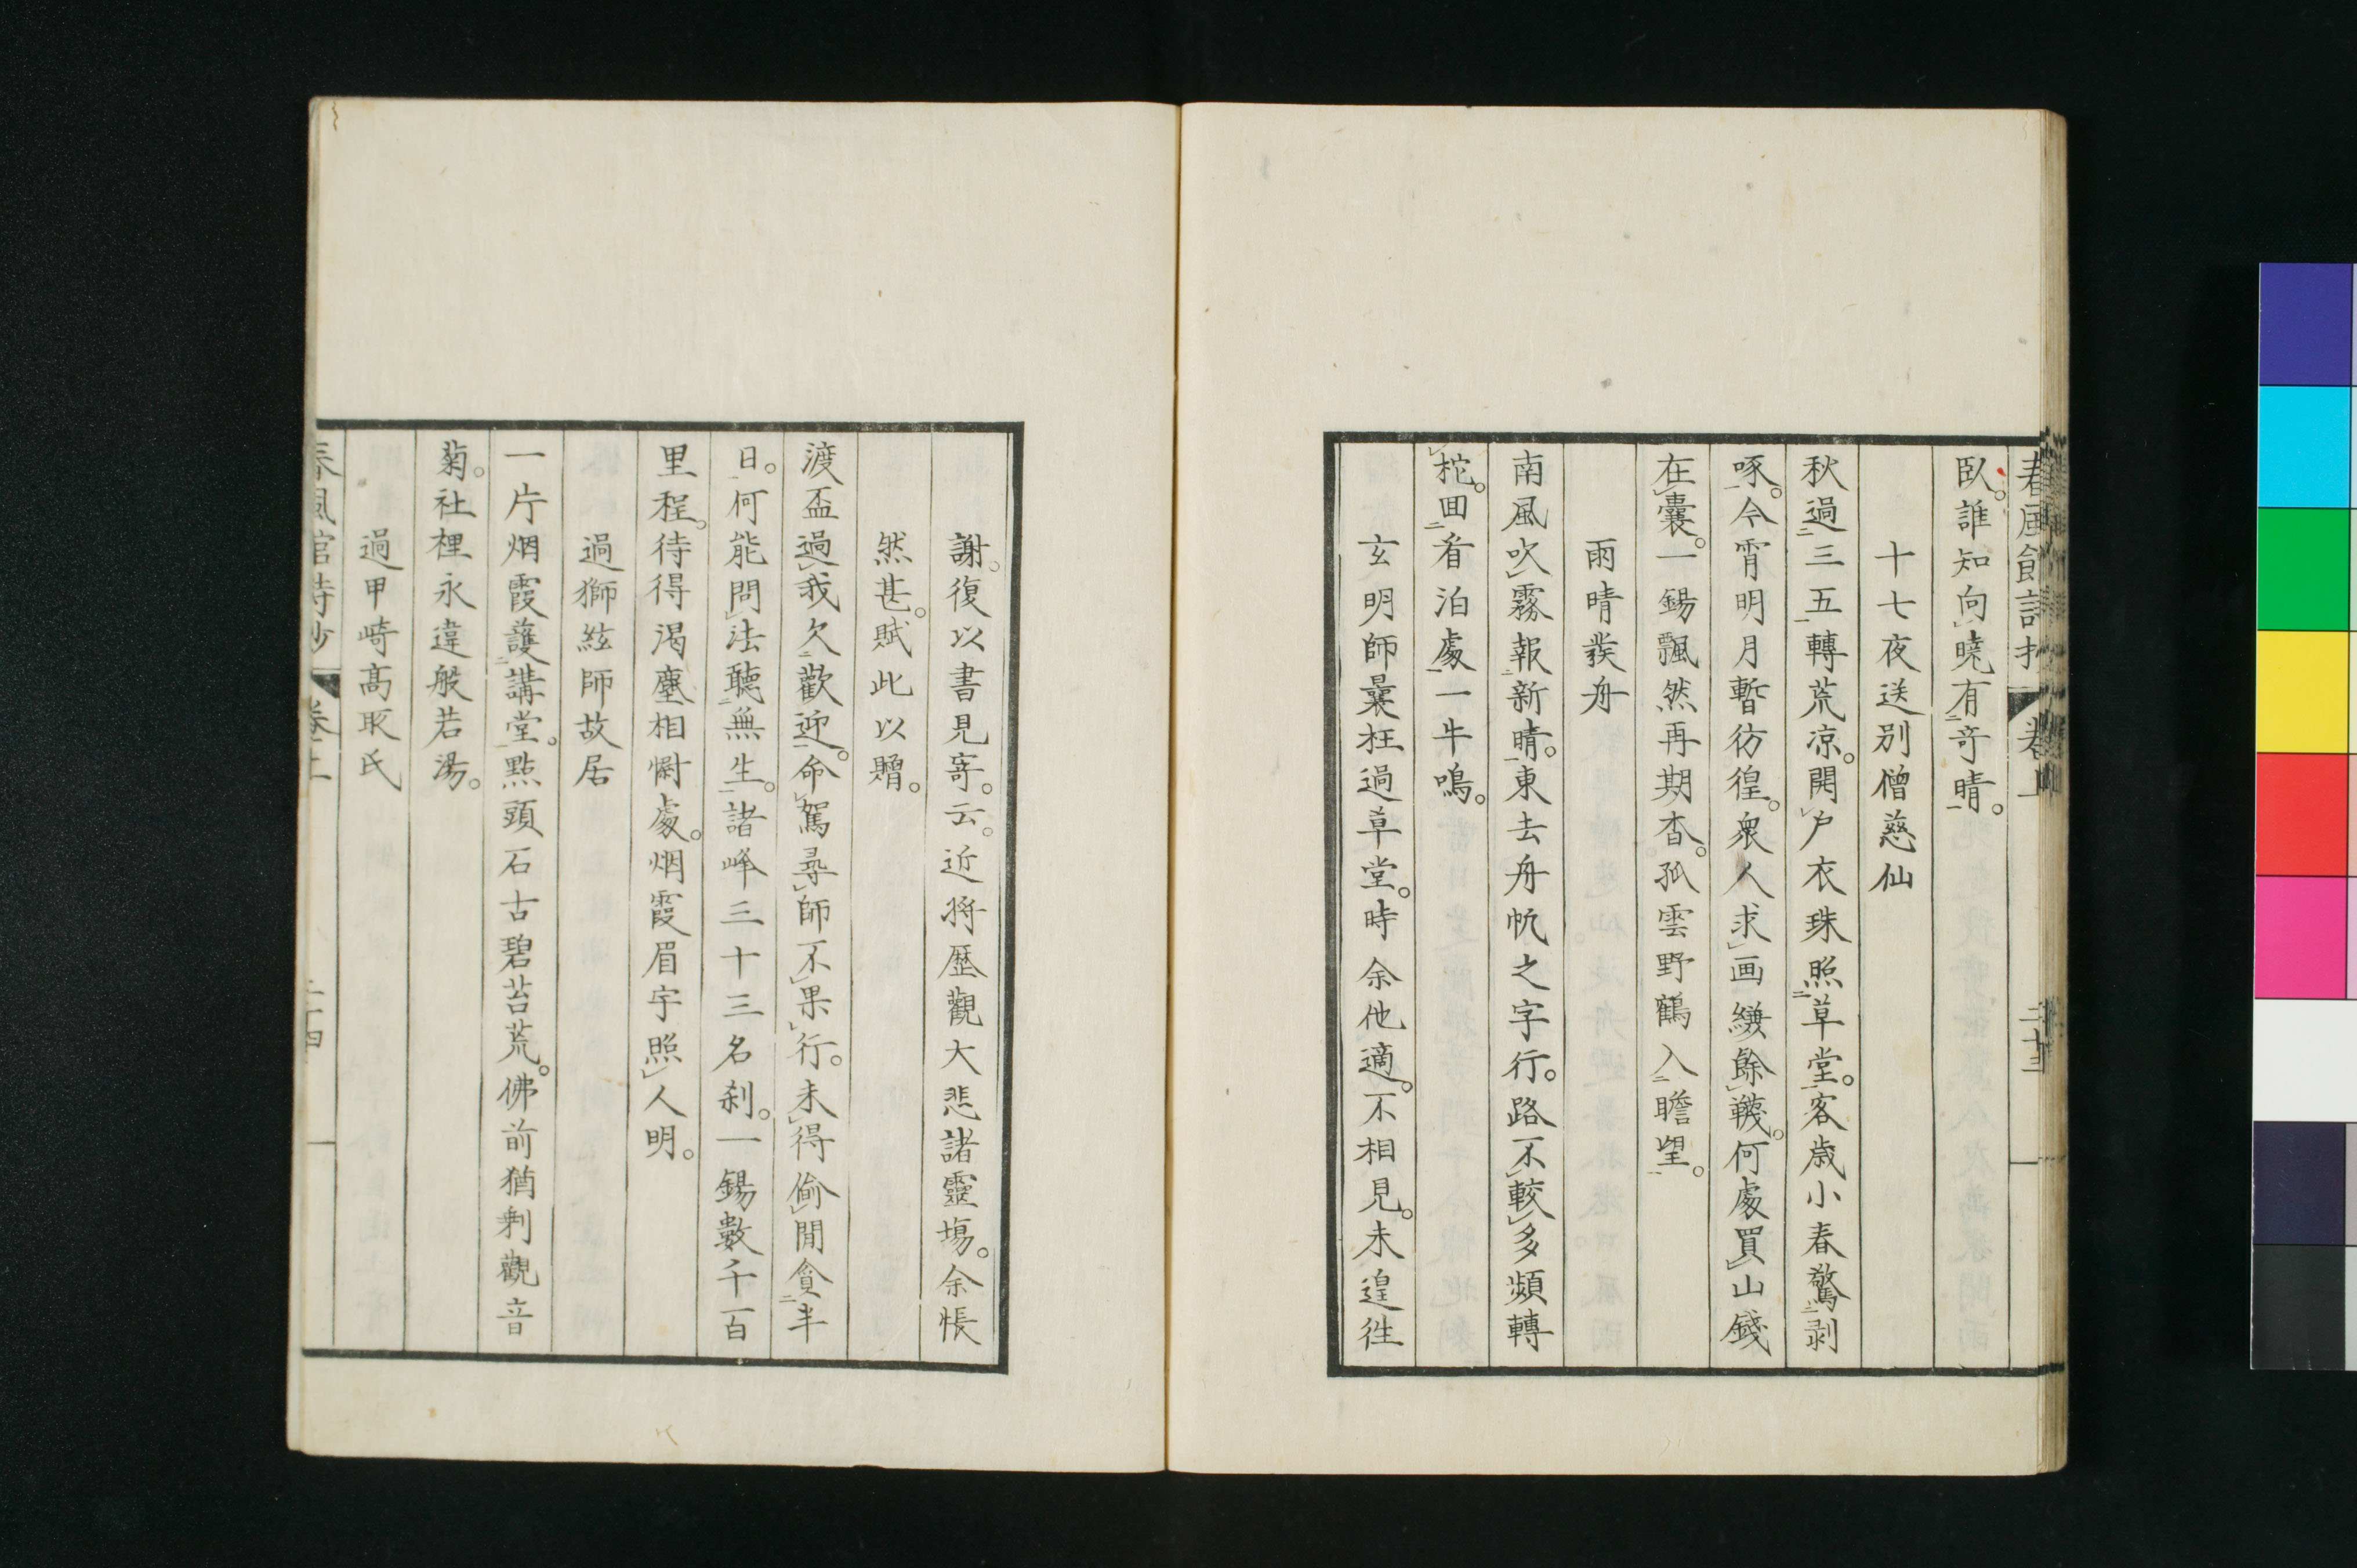 春風館詩抄 卷上 二十三
臥。誰知向曉有奇晴。
十七夜送別僧慈仙
秋過三五轉荒凉。開戶衣珠照草堂。客歲小春驚剥
啄。今宵明月暫彷徨。衆人求画縑餘韈。何處買山錢
在囊。一錫飄然再期杳。孤雲野鶴入瞻望。
雨晴發舟
南風吹霧報新晴。東去舟帆之字行。路不較多頻轉
柁。回看泊處一牛鳴。
玄明師曩枉過草堂。時余他適。不相見。未遑徃
謝。復以書見寄。云。近將歷觀大悲諸靈塲。余悵
然甚。賦此以贈。
渡盃過我久歡迎。命駕尋師不果行。未得偷閒貪半
日。何能問法聽無生。諸峰三十三名刹。一錫數千百
里程。待得渴塵相慰處。烟霞眉宇照人明。
過獅絃師故居
一片烟霞護講堂。點頭石古碧苔荒。佛前猶剩觀音
菊。社裡永違般若湯。
過甲崎高取氏
春風館詩抄 卷上 二十四